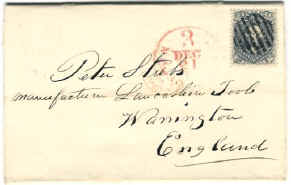 3
DEC
21
Peter Stubs
manufacturer Lancashire Tools
Warrington
England